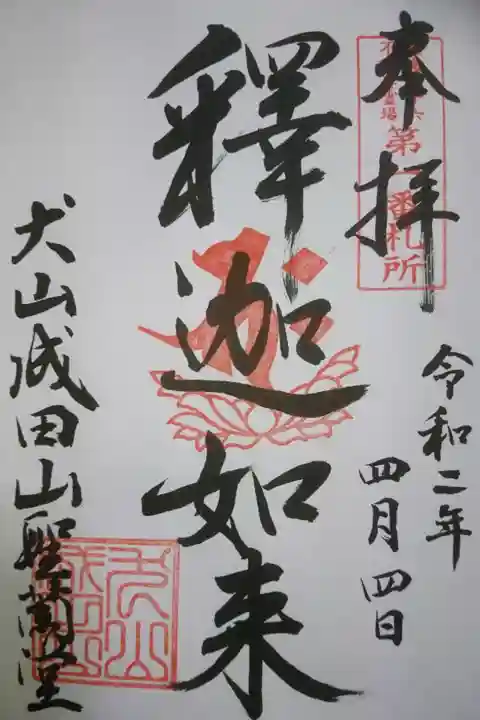 奉拝
第一番札所
令和二年
四月四日
釋迦如来
犬山成田山聖萬堂